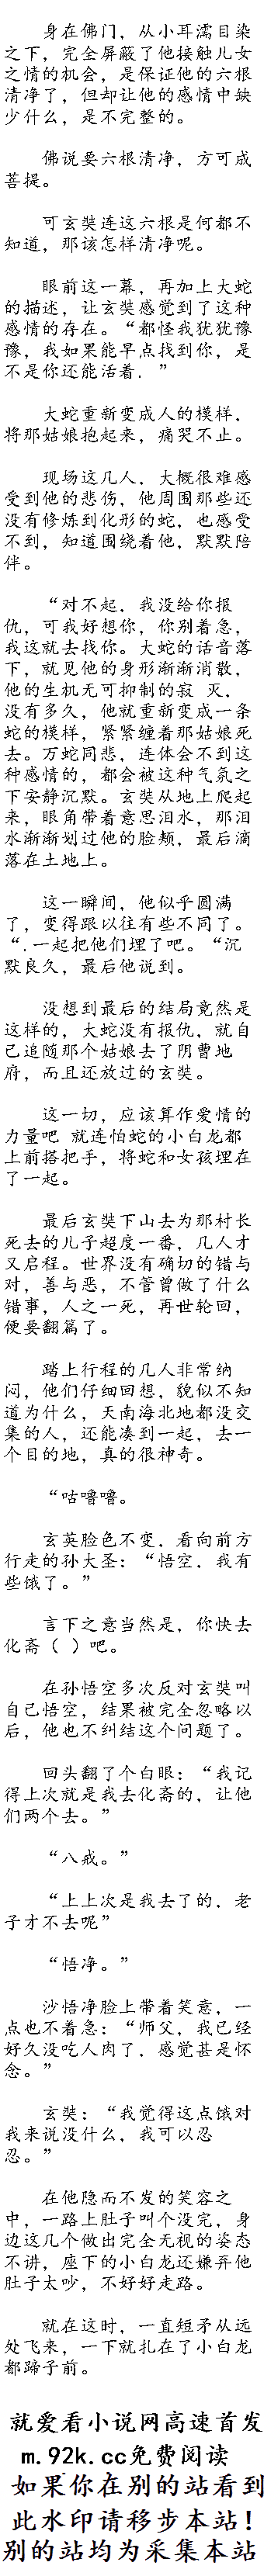 身在佛门，从小耳濡目染
之下，完全屏蔽了他接触儿女
之情的机会，是保证他的六根
清净了，但却让他的感情中缺
少什么，是不完整的。
佛说要六根清净，方可成
菩提。
可玄奘连这六根是何都不
知道，那该怎样清净呢。
眼前这一幕，再加上大蛇
的描述，让玄奘感觉到了这种
感情的存在。“都怪我犹犹豫
豫，我如果能早点找到你，是
不是你还能活着．”
大蛇重新变成人的模样，
将那姑娘抱起来，痛哭不止。
现场这几人，大概很难感
受到他的悲伤，他周围那些还
没有修炼到化形的蛇，也感受
不到，知道围绕着他，默默陪
伴。
“对不起，我没给你报
仇，可我好想你，你别着急，
我这就去找你。大蛇的话音落
下，就见他的身形渐渐消散，
他的生机无可抑制的寂 灭，
没有多久，他就重新变成一条
蛇的模样，紧紧缠着那姑娘死
去。万蛇同悲，连体会不到这
种感情的，都会被这种气氛之
下安静沉默。玄奘从地上爬起
来，眼角带着意思泪水，那泪
水渐渐划过他的脸颊，最后滴
落在土地上。
这一瞬间，他似乎圆满
了，变得跟以往有些不同了。
“．一起把他们埋了吧。“沉
默良久，最后他说到。
没想到最后的结局竟然是
这样的，大蛇没有报仇，就自
己追随那个姑娘去了阴曹地
府，而且还放过的玄奘。
这一切，应该算作爱情的
力量吧 就连怕蛇的小白龙都
上前搭把手，将蛇和女孩埋在
了一起。
最后玄奘下山去为那村长
死去的儿子超度一番，几人才
又启程。世界没有确切的错与
对，善与恶，不管曾做了什么
错事，人之一死，再世轮回，
便要翻篇了。
踏上行程的几人非常纳
闷，他们仔细回想，貌似不知
道为什么，天南海北地都没交
集的人，还能凑到一起，去一
个目的地，真的很神奇。
“咕噜噜。
玄英脸色不变，看向前方
行走的孙大圣：“悟空，我有
些饿了。”
言下之意当然是，你快去
化斋（ ）吧。
在孙悟空多次反对玄奘叫
自己悟空，结果被完全忽略以
后，他也不纠结这个问题了。
回头翻了个白眼：“我记
得上次就是我去化斋的，让他
们两个去。”
“八戒。”
“上上次是我去了的，老
子才不去呢”
“悟净。”
沙悟净脸上带着笑意，一
点也不着急：“师父，我已经
好久没吃人肉了，感觉甚是怀
念。”
玄奘：“我觉得这点饿对
我来说没什么，我可以忍
忍。”
在他隐而不发的笑容之
中，一路上肚子叫个没完，身
边这几个做出完全无视的姿态
不讲，座下的小白龙还嫌弃他
肚子太吵，不好好走路。
就在这时，一直短矛从远
处飞来，一下就扎在了小白龙
都蹄子前。
就爱看小说网高速首发
m.92k.cc免费阅读
如果你在别的站看到
此水印请移步本站！
别的站均为采集本站